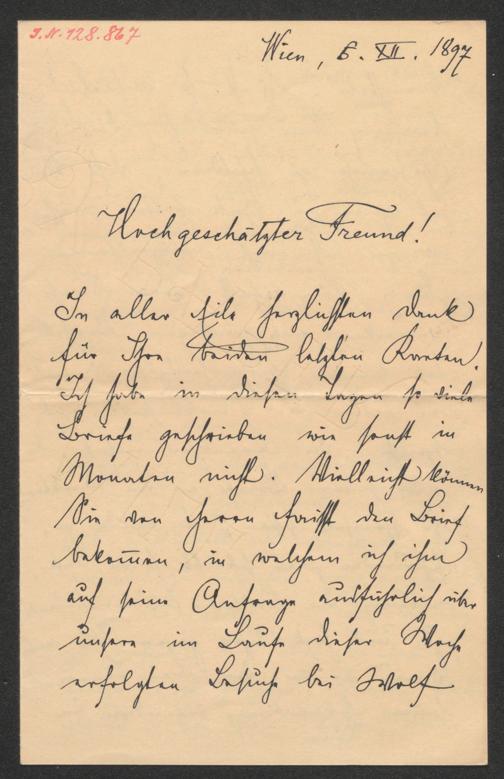 I.N. 128.867
Wien, 6. XII. 1897
Hochgeschätzter Freund!
In aller Eile herzlichsten Dank
für Ihre beiden letzten Karten!
Ich habe in diesen Tagen so viele
Briefe geschrieben wie sonst in
Monaten nicht. Vielleicht können
Sie von Herrn Faißt den Brief
bekommen, in welchem ich ihm
auf seine Anfrage ausführlich über
unsere im Laufe dieser Woche
erfolgten Besuche bei Wolf